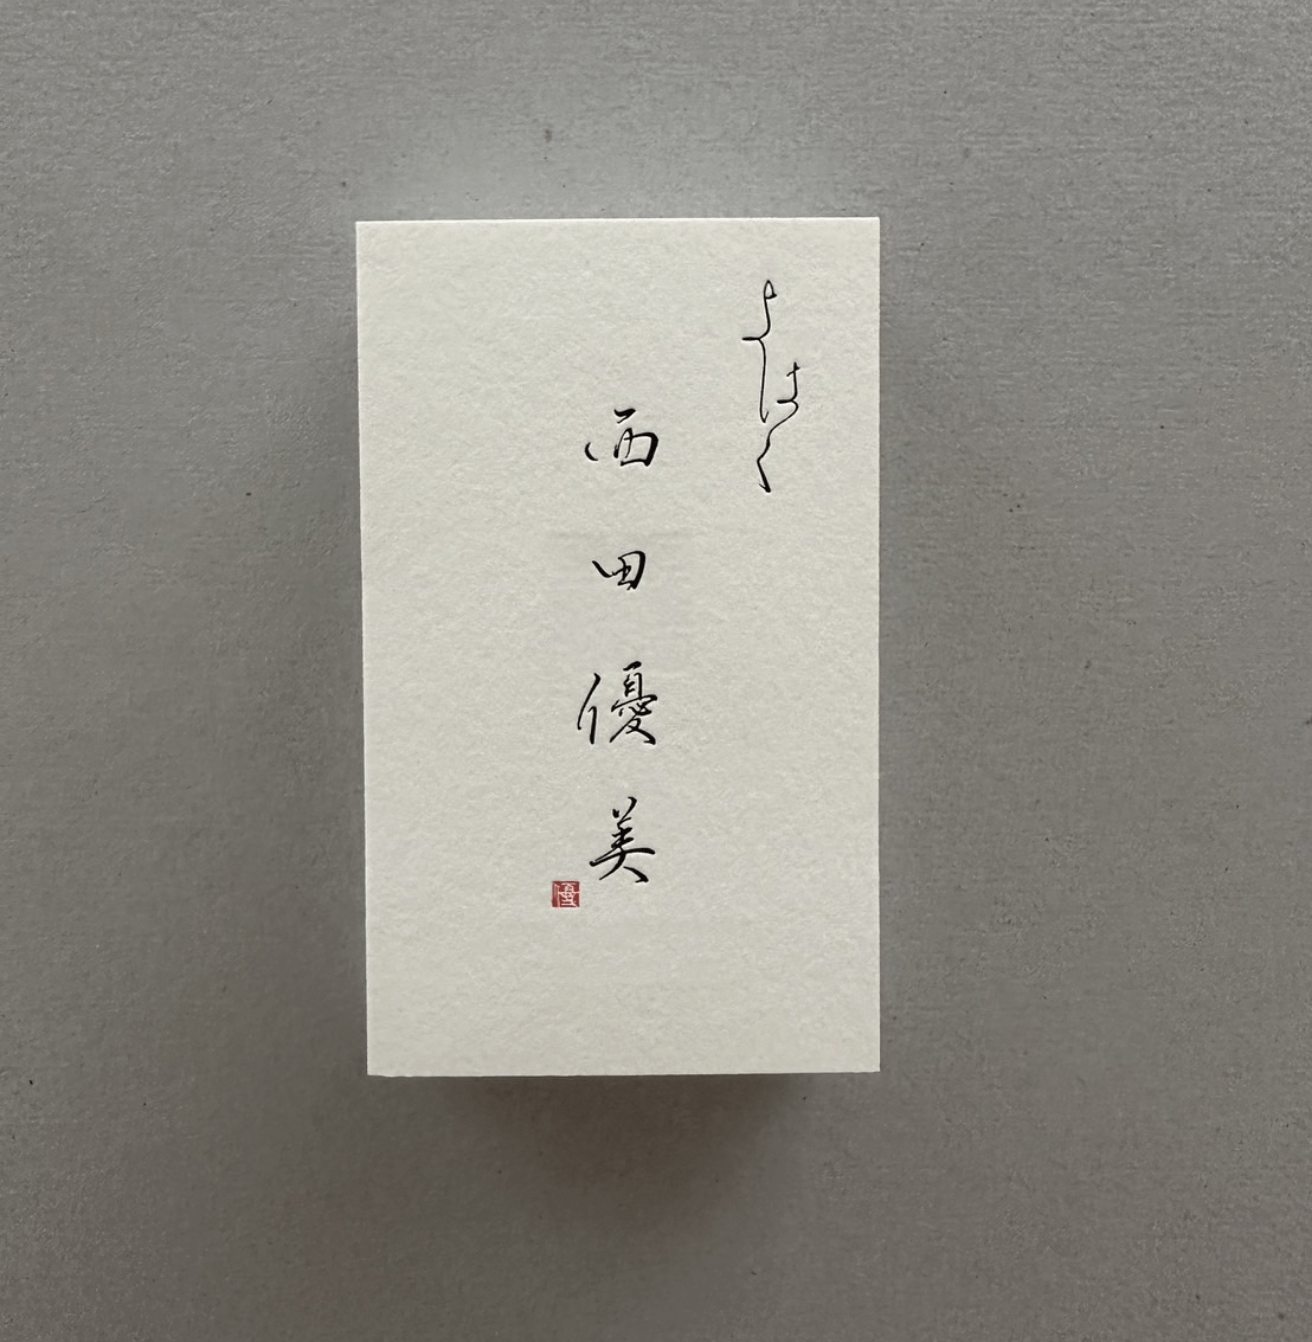 よはく
西田優美
優